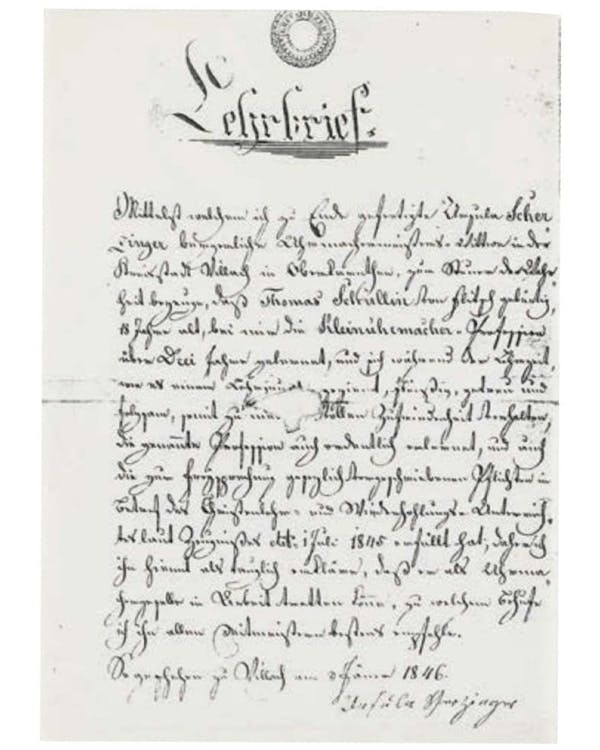 Lehrbrief.
Mittelst welchem ich zu Ende gefertigte Ursula Scher
zinger bürgerliche Uhrmachermeisters-Wittwe in der
Kreisstadt Villach in Oberkärnthen, zur Steuer der Wahr
heit bezeuge, daß Thomas Schullin von Flitsch gebürtig,
18 Jahre alt, bei mir die Kleinuhrmacher-Profession
über Drei Jahre gelernt, und sich während der Lehrzeit,
wie es einem geziemt, fleißig, getreu und
folgsam, somit zu vollen Zufriedenheit verhalten,
die genannte Profession auch ordentlich erlernet, und auch
die zur Freisprechung gesetzlich vorgeschriebenen Pflichten in
Betref der Christenlehr- und Wiederhohlungs-Unterrich-
tes laut Zeugnisses ddto. 1 Juli 1845 erfüllt hat; daher ich
ihn hiemit als tauglich erkläre, daß er als Uhrma-
chergeselle in Arbeit tretten könne, zu welchem Behufe
ich ihn allen Mitmeistern bestens empfehle.
So geschehen zu Villach am Jäner 1846.
Ursula Scherzinger